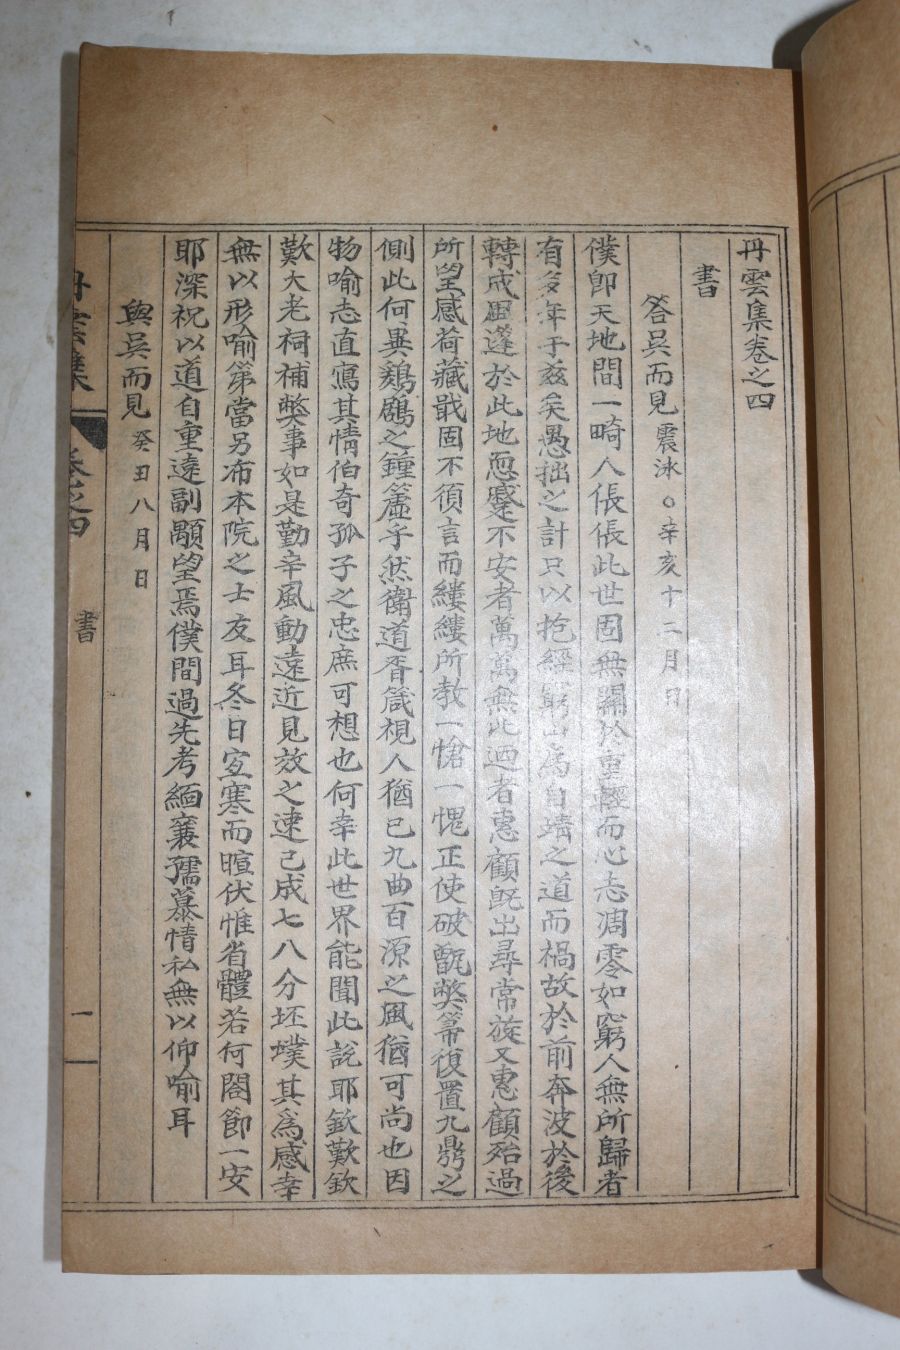 丹雲集卷之四
書
答吳而見 震泳○辛亥十二月日
僕卽天地間一畸人倀倀此世固無關於重輕而心志凋零如窮人無所歸者
有多年于玆矣愚拙之計只以抱經窮山爲自靖之道而禍故於前奔波於後
轉成風蓬於此地怨蹙不安者萬萬無比迺者惠顧旣出尋常旋又惠顧殆過
所望感荷藏戢固不須言而縷縷所敎一愴一愧正使破甑獘箒復置九鼎之
側此何異鷄鶋之鐘簴乎然衛道胥箴視人猶已九曲百源之風猶可尚也因
物喻志直寫其情伯奇孤子之忠庶可想也何幸此世界能聞此說耶欽歎欽
歎大老祠補獘事如是勤辛風動遠近見效之速已成七八分坯墣其爲感幸
無以形喻第當另布本院之士友耳冬日冱寒而暄伏惟省體若何閤節一安
耶深祝以道自重遠副顒望焉僕間過先考緬襄孺慕情私無以仰喻耳
與吳而見 癸丑八月日
丹雲集 卷之四 書 一